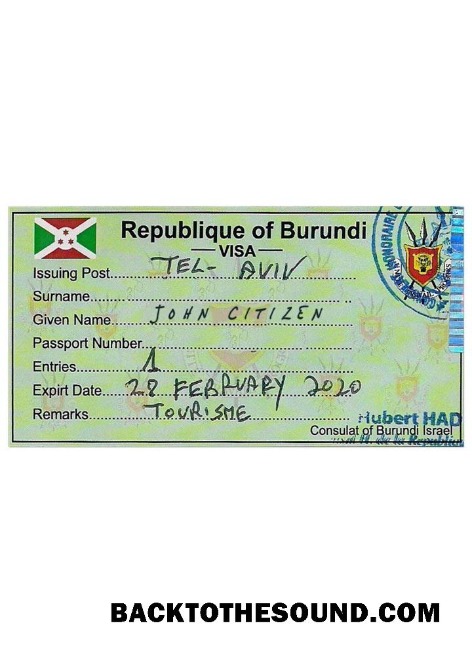 Republique of Burundi
VISA
Issuing Post TEL- AVIV
Surname
Given Name JOHN CITIZEN
Passport Number
Entries 1
Expirt Date 28 FEBRUARY 2020
Remarks TOURISME
Hubert HAD
Consulat of Burundi Israel
de la Republiq
BACKTOTHESOUND.COM